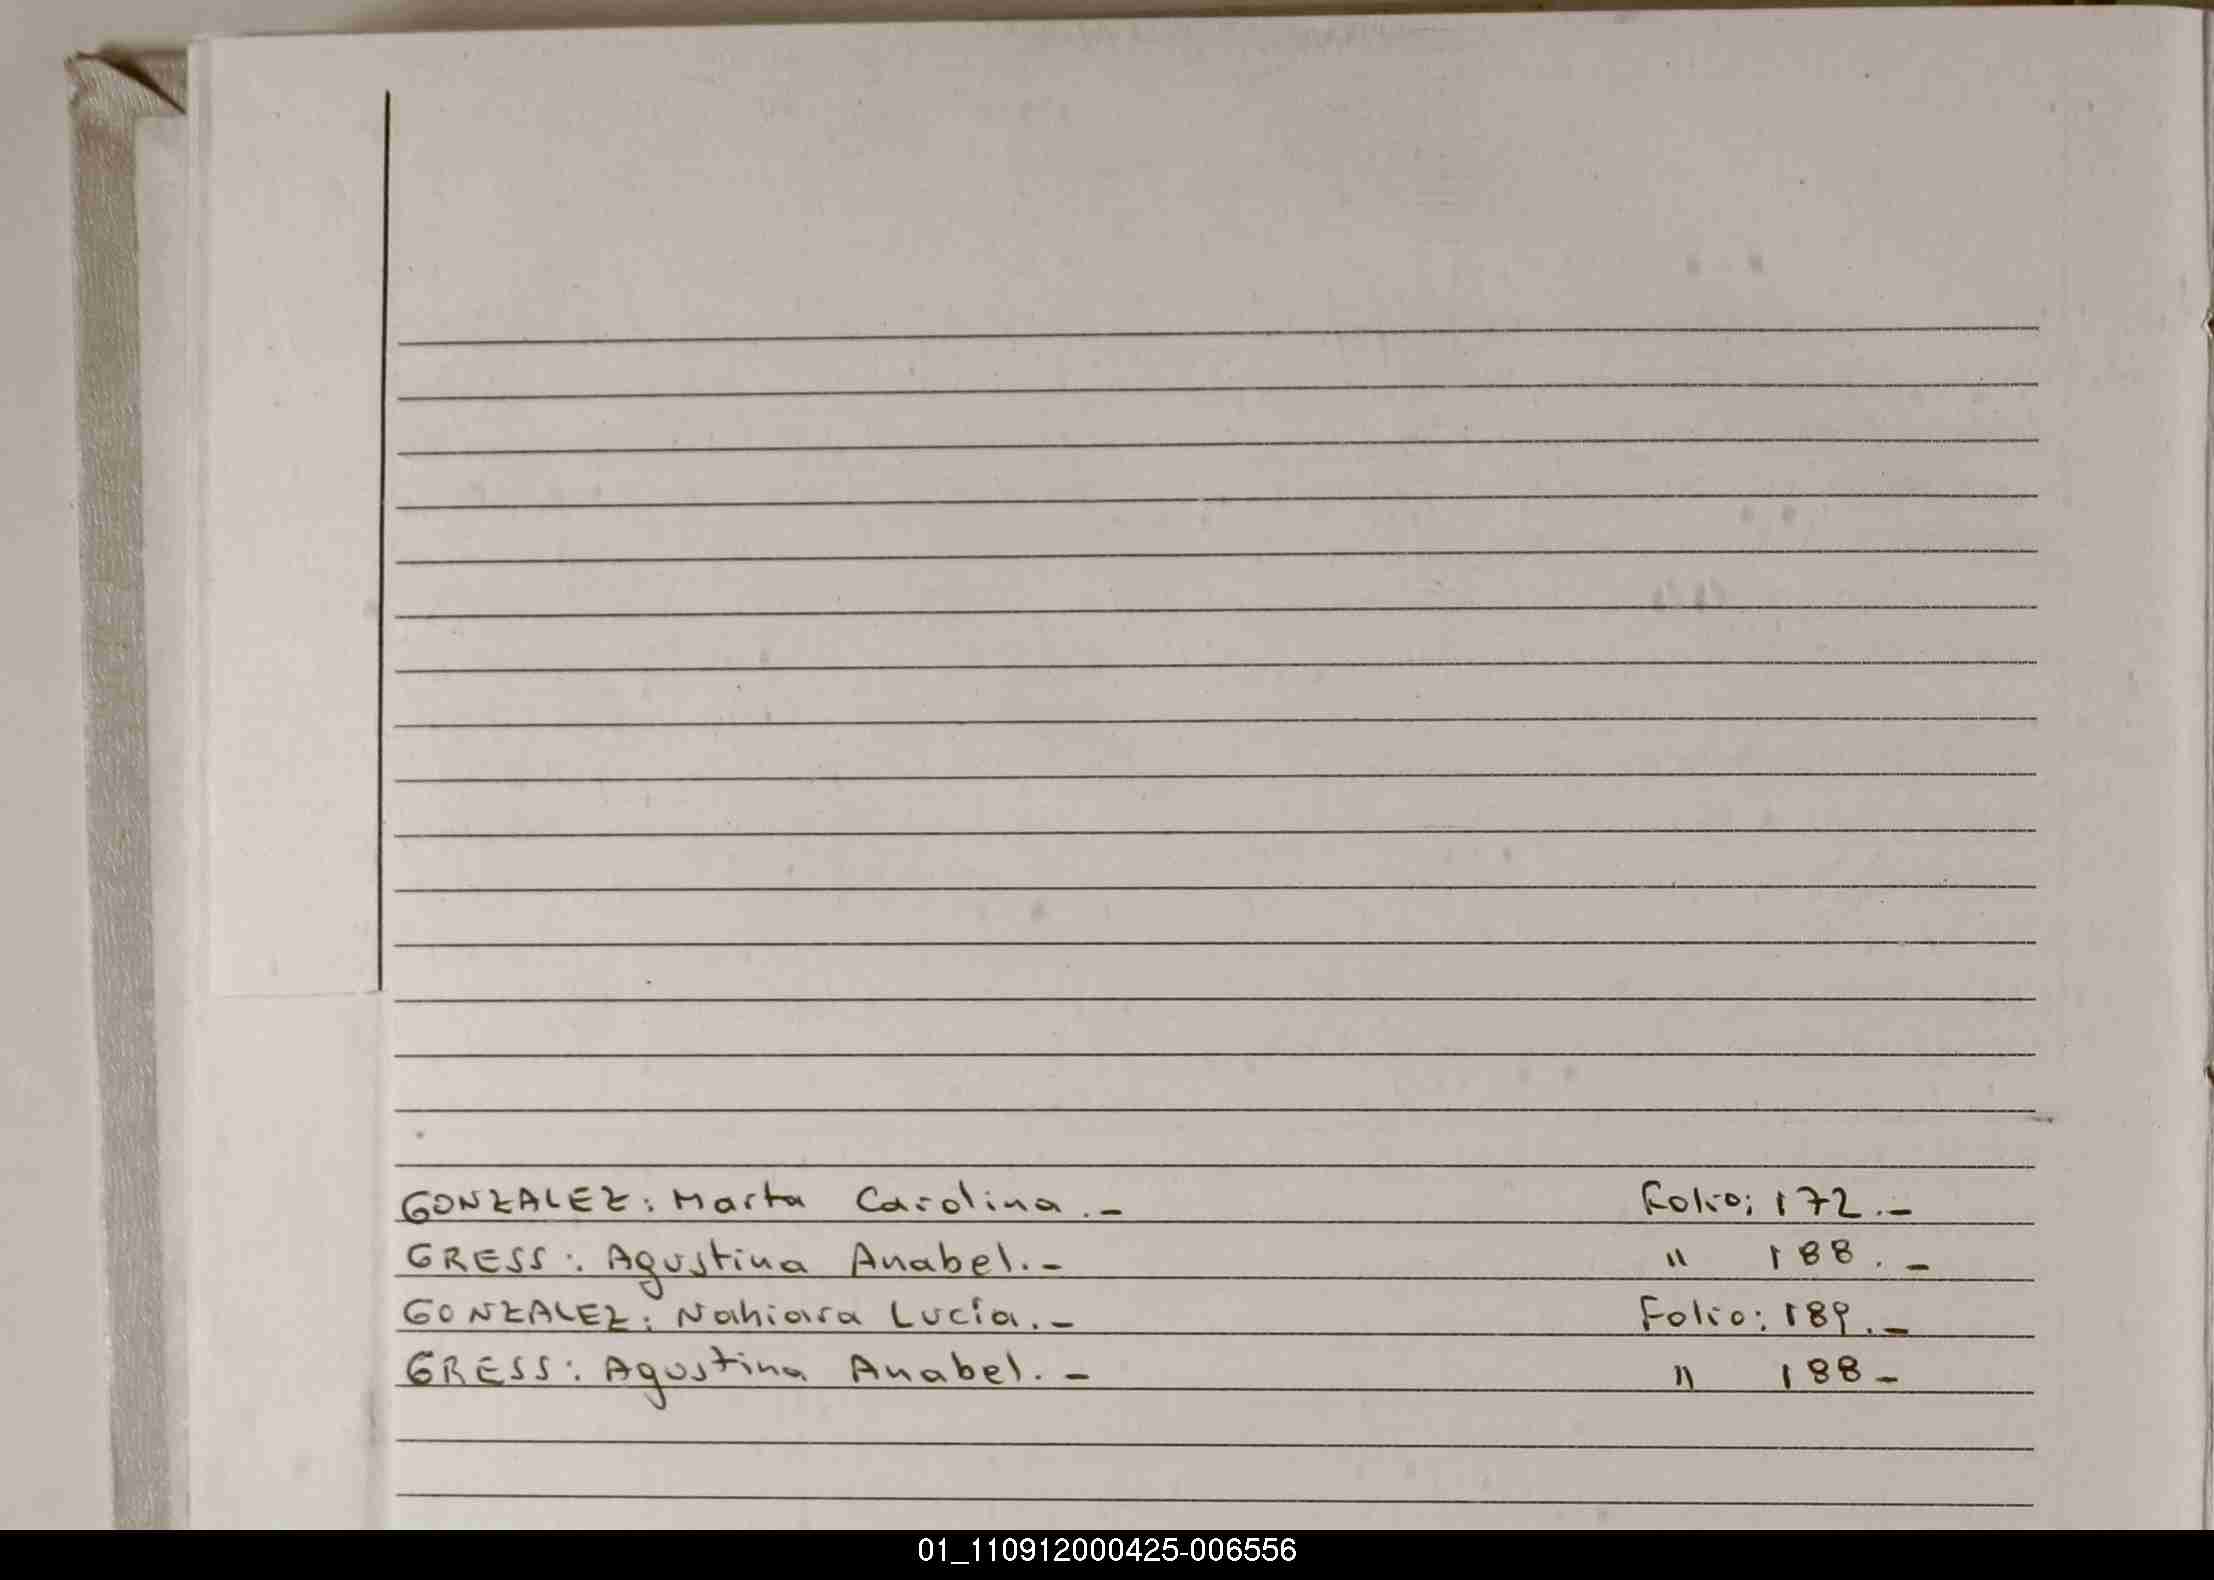 GONZALEZ: Marta Carolina.- Folio: 172.-
GRESS: Agustina Anabel.- " 188.-
GONZALEZ: Nahiara Lucía.- Folio: 189.-
GRESS: Agustina Anabel.- " 188-
01_110912000425-006556